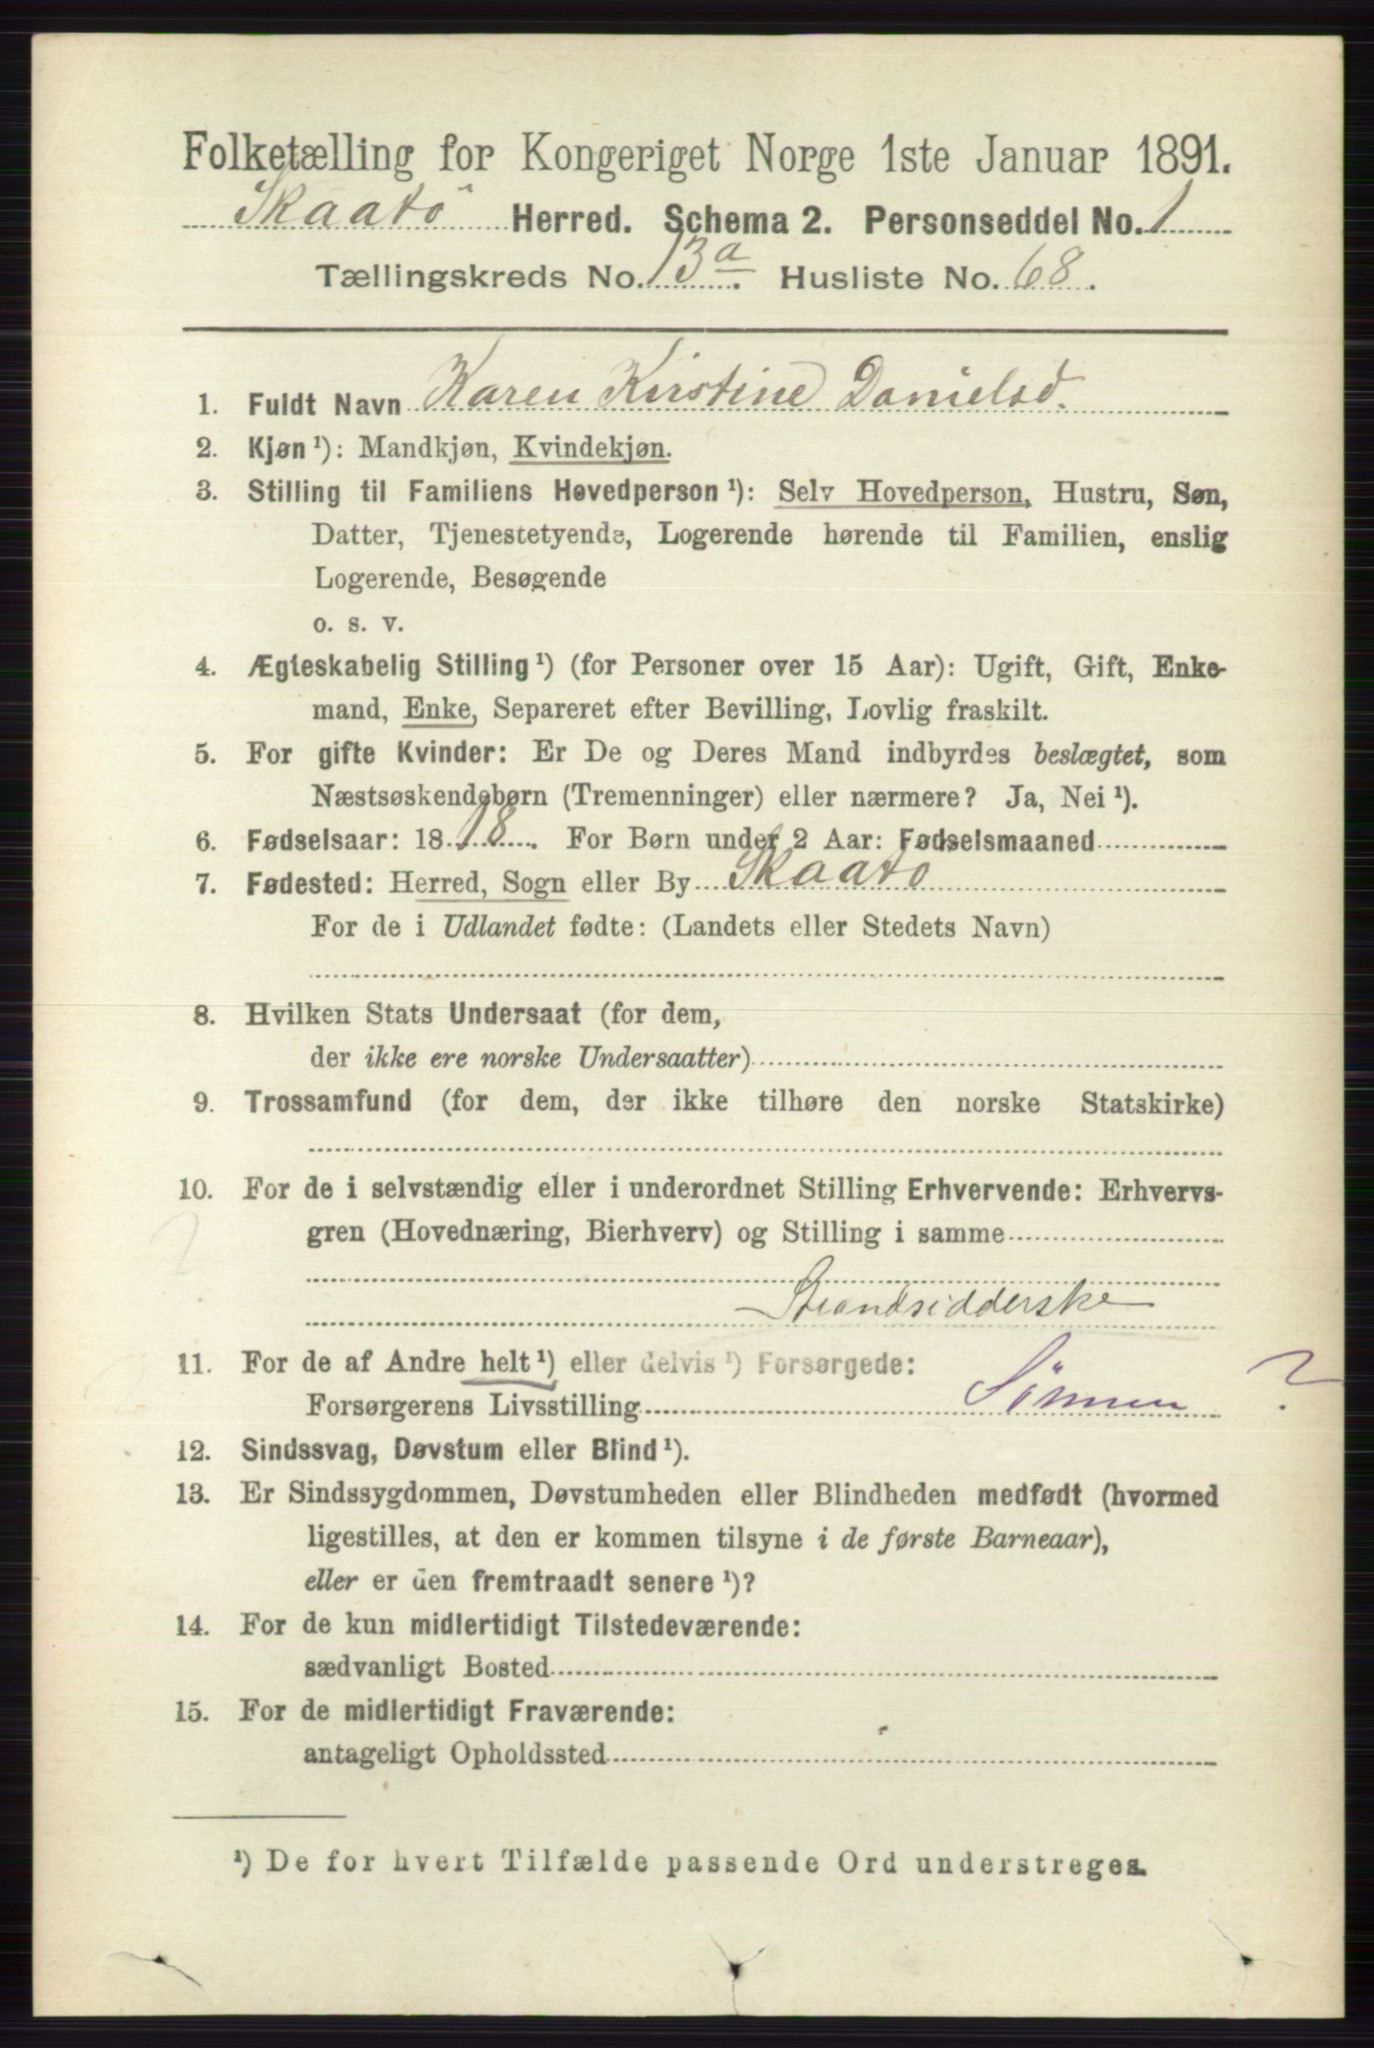 Folketælling for Kongeriget Norge 1ste Januar 1891.
Skaatö Herred. Schema 2. Personseddel No. 1
Tællingskreds No. 13a. Husliste No. 68.
1. Fuldt Navn Karen Kirstine Danielsd.
2. Kjøn¹): Mandkjøn, Kvindekjøn.
3. Stilling til Familiens Hovedperson¹): Selv Hovedperson, Hustru, Søn,
Datter, Tjenestetyende, Logerende hørende til Familien, enslig
Logerende, Besøgende
o. s. v.
4. Ægteskabelig Stilling¹) (for Personer over 15 Aar): Ugift, Gift, Enke-
mand, Enke, Separeret efter Bevilling, Lovlig fraskilt.
5. For gifte Kvinder: Er De og Deres Mand indbyrdes beslægtet, som
Næstsøskendebørn (Tremenninger) eller nærmere? Ja, Nei¹).
6. Fødselsaar: 1818. For Børn under 2 Aar: Fødselsmaaned
7. Fødested: Herred, Sogn eller By Skaatö
For de i Udlandet fødte: (Landets eller Stedets Navn)
8. Hvilken Stats Undersaat (for dem,
der ikke ere norske Undersaatter)
9. Trossamfund (for dem, der ikke tilhøre den norske Statskirke)
10. For de i selvstændig eller i underordnet Stilling Erhvervende: Erhvervs-
gren (Hovednæring, Bierhverv) og Stilling i samme
Strandsidderske
11. For de af Andre helt¹) eller delvis¹) Forsørgede:
Forsørgerens Livsstilling Sönnen ?
12. Sindssvag, Døvstum eller Blind¹).
13. Er Sindssygdommen, Døvstumheden eller Blindheden medfødt (hvormed
ligestilles, at den er kommen tilsyne i de første Barneaar),
eller er den fremtraadt senere¹)?
14. For de kun midlertidigt Tilstedeværende:
sædvanligt Bosted
15. For de midlertidigt Fraværende:
antageligt Opholdssted
¹) De for hvert Tilfælde passende Ord understreges.